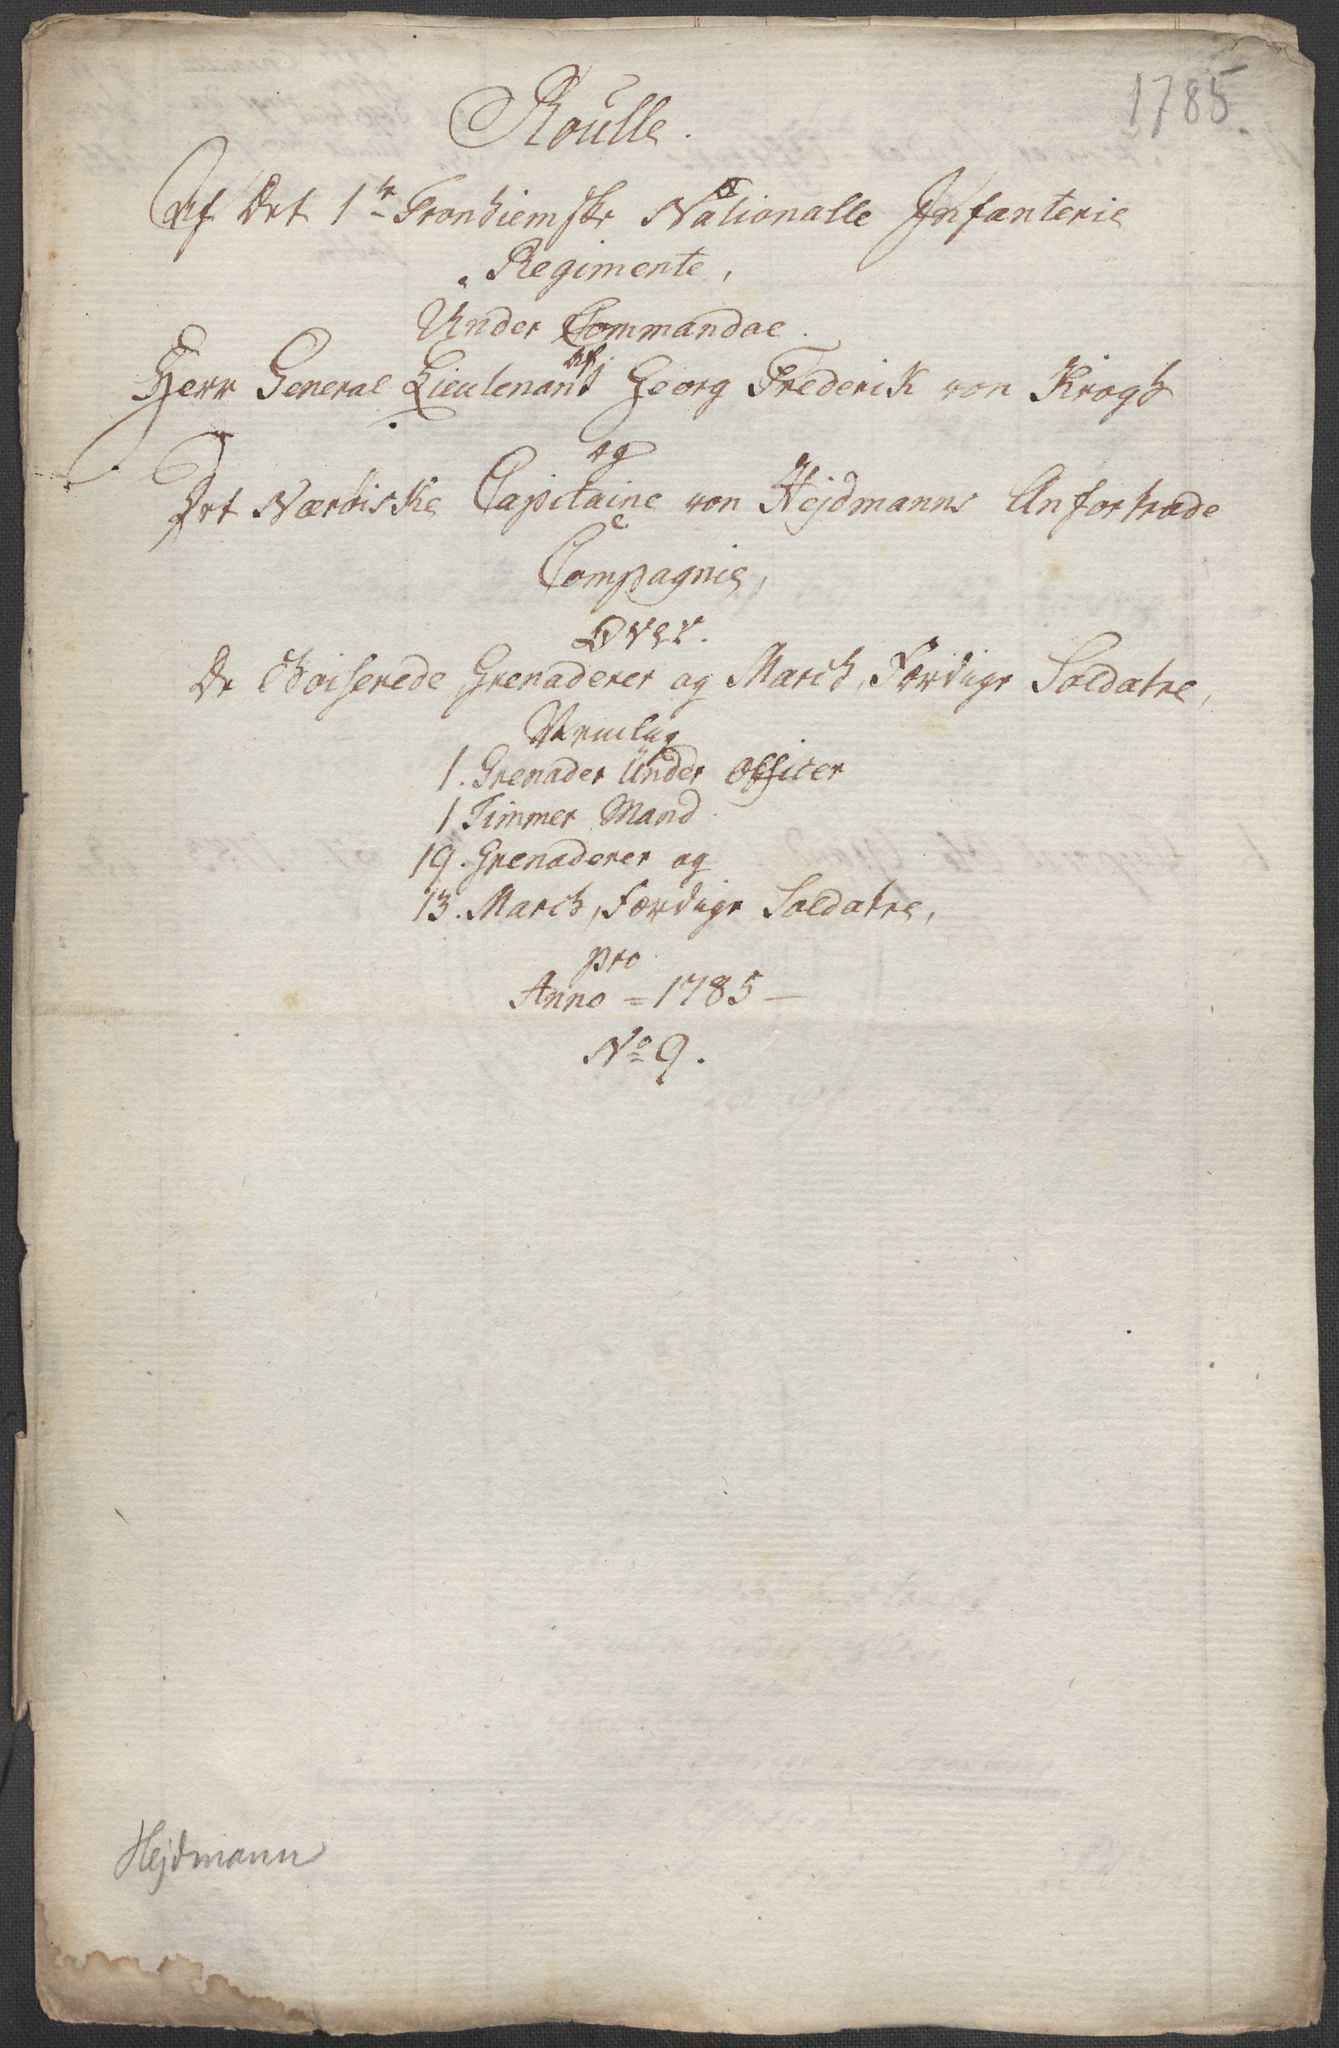 1785
Roulle.
Af Det 1te Tronhiemske Nationalle Infanterie
Regimente,
Under Commandoe
af
Herr General Lieutenant Georg Frederik von Krogh
og
Det Nærøiske Capitaine von Hejdmanns Anfortrade
Compagnie,
Over.
De Choiserede Grenaderer og March, Færdige Soldatre,
Nemlig
1. Grenader Under Officer
1 Timmer Mand
19. Grenaderer og
13. March, Færdige Soldatre,
pro
Anno = 1785 —
No 9.
Hejdmann